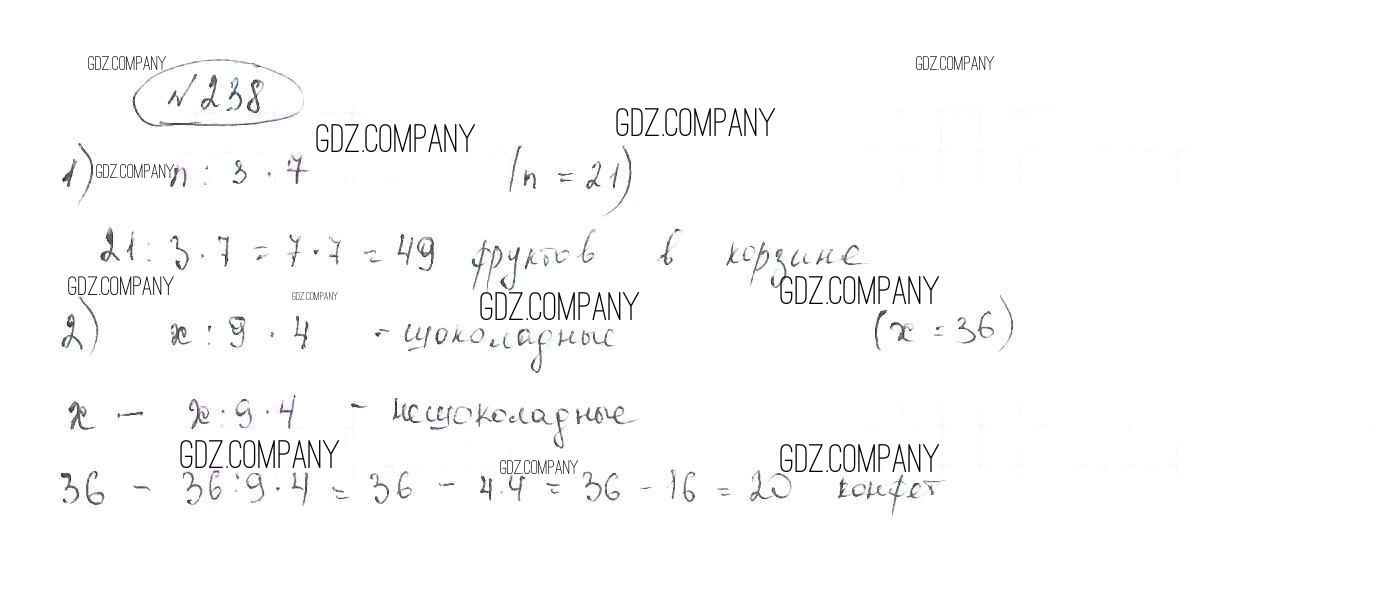 GDZ.COMPANY GDZ.COMPANY
№238
GDZ.COMPANY GDZ.COMPANY
1) GDZ.COMPANY n : 3 · 7 (n = 21)
21 : 3 · 7 = 7 · 7 = 49 фруктов в корзине
GDZ.COMPANY GDZ.COMPANY GDZ.COMPANY GDZ.COMPANY
2) x : 9 · 4 - шоколадные (x = 36)
x - x : 9 · 4 - нешоколадные
GDZ.COMPANY GDZ.COMPANY GDZ.COMPANY
36 - 36 : 9 · 4 = 36 - 4 · 4 = 36 - 16 = 20 конфет